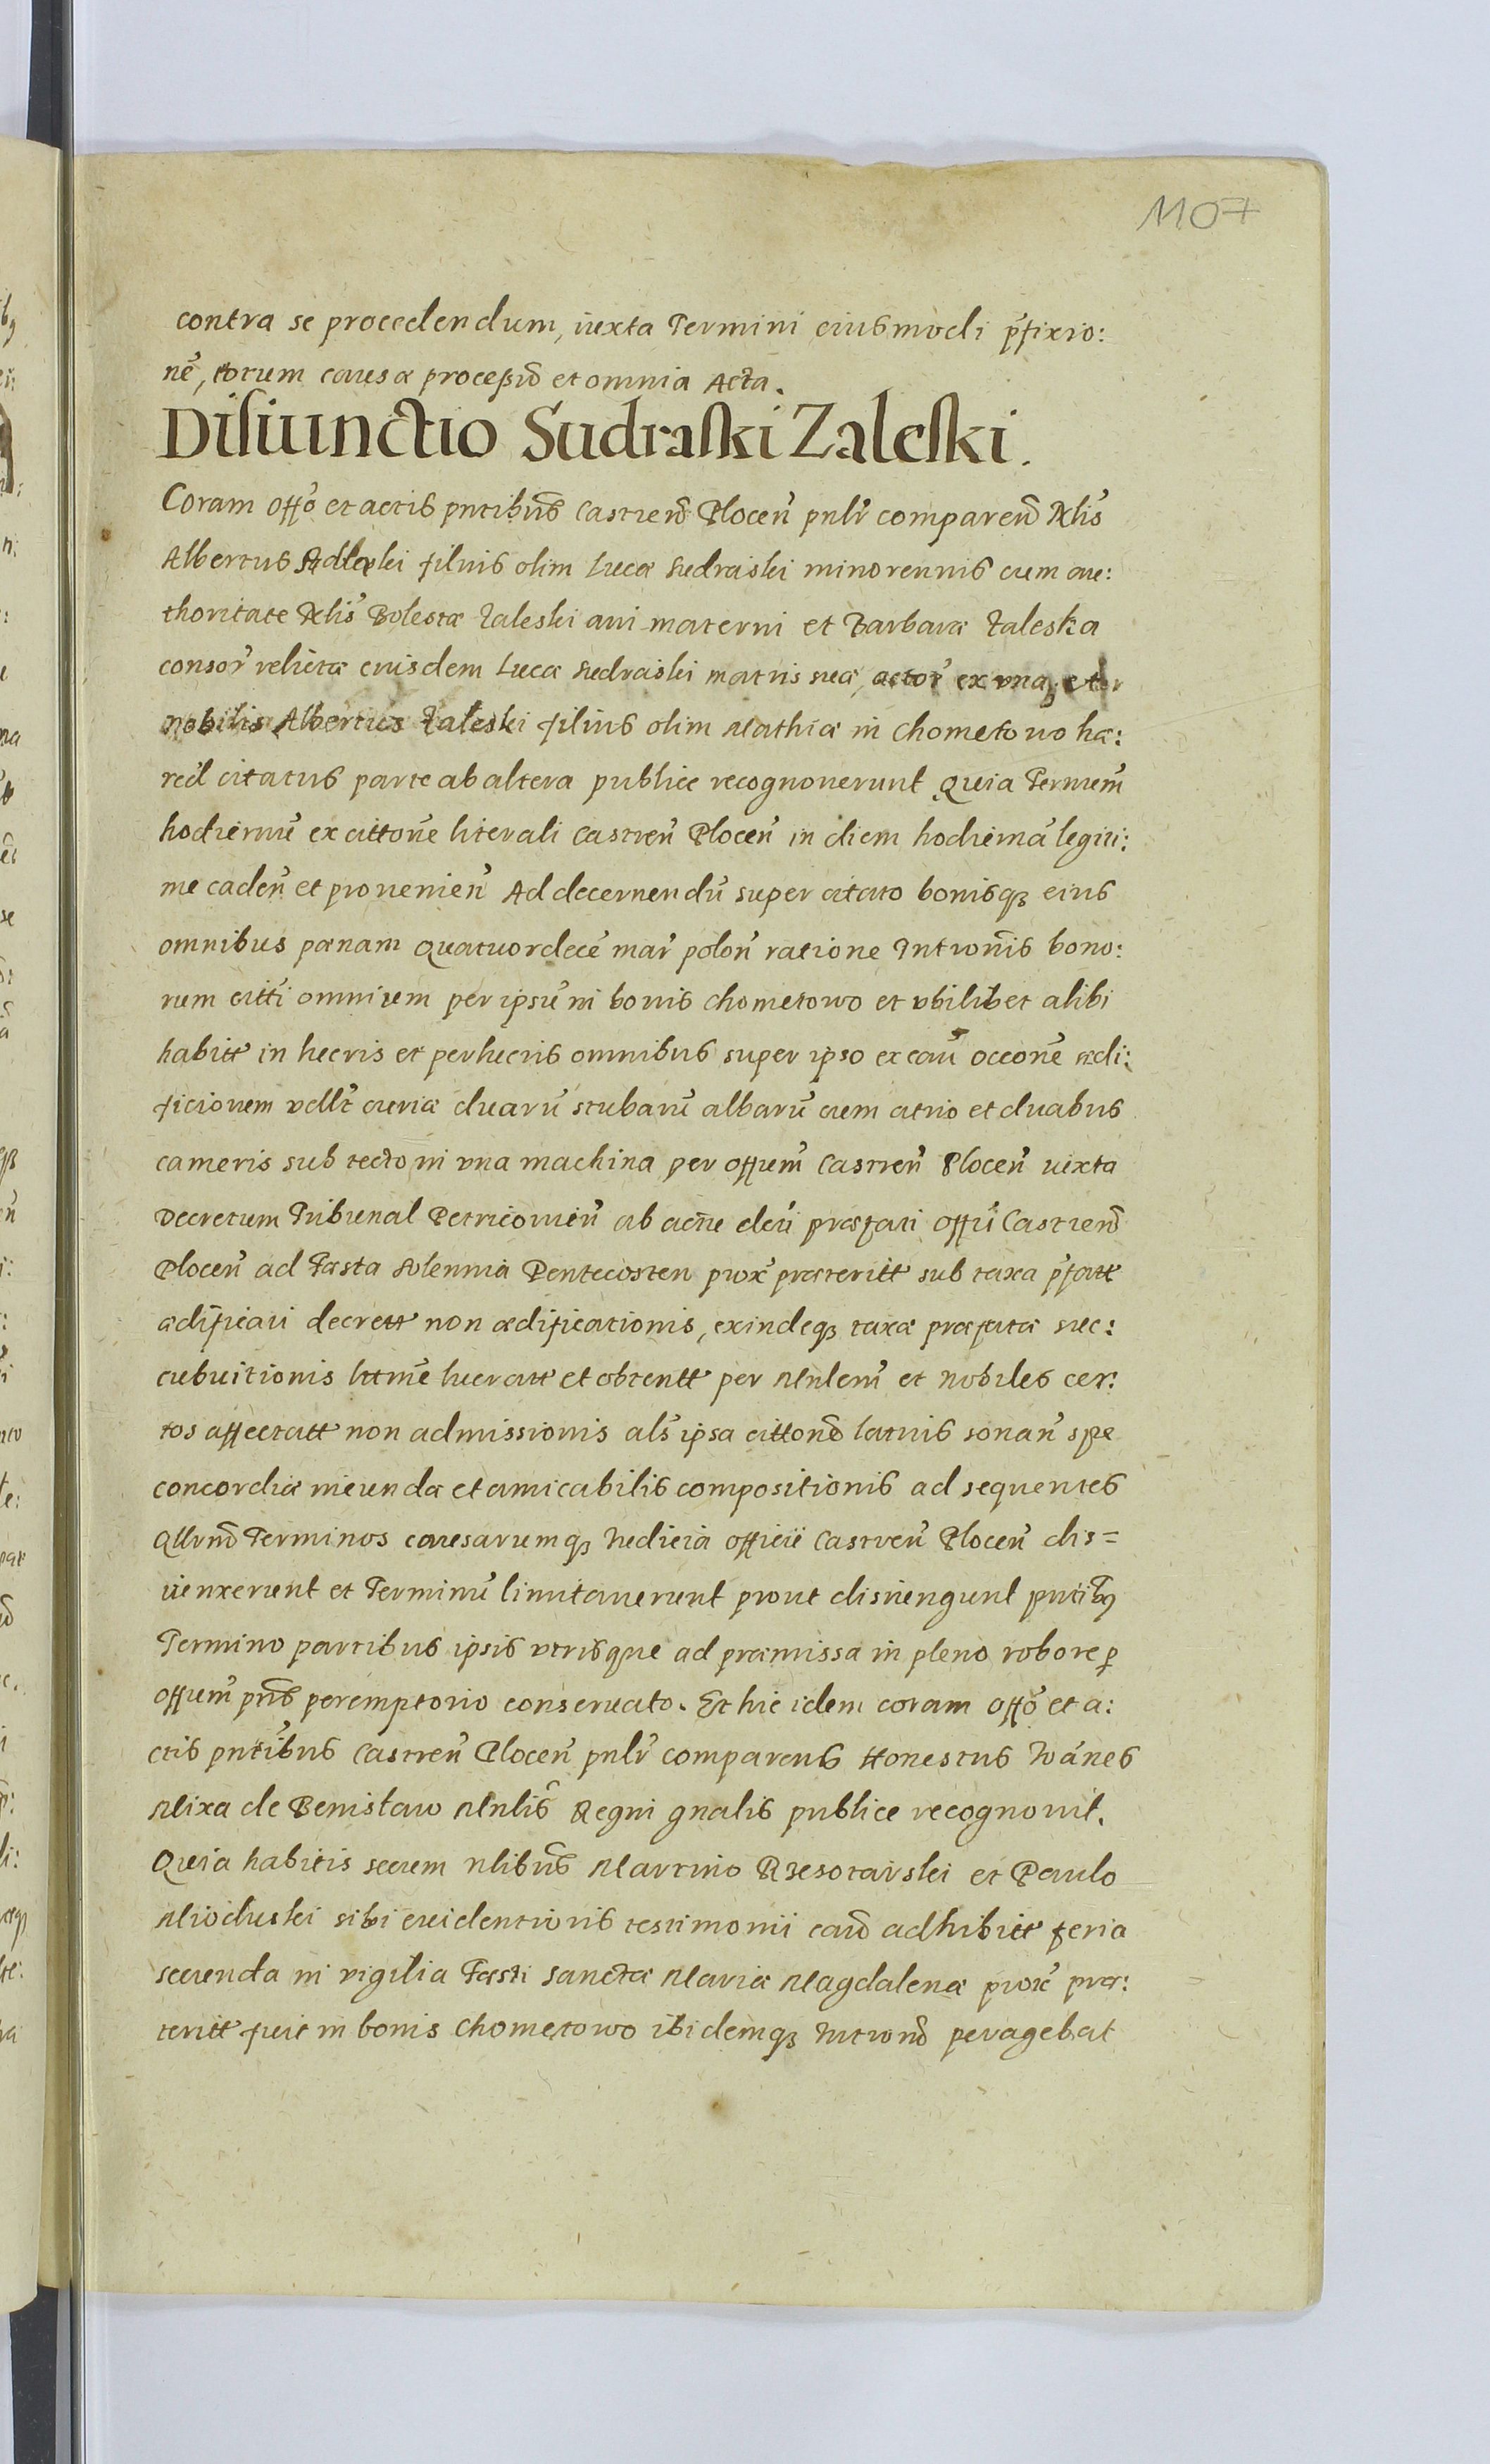 1107
contra se procedendum, iuxta Termini eiusmodi p̃fixio:
nẽ, totum causæ processũ et omnia Acta.
Disiunctio Sudraski Zaleski.
Coram offõ et actis pntibus Castreñ Plocen̄ pnlr̃ comparen̄ Nlis̃
Albertus filius olim Lucæ Sudraski minorennis cum au:
thoritate Nlis̃ Bolestæ Zaleski aui materni et Barbaræ Zaleska
consor̃ relictæ eiusdem Lucæ Sudraski matris suæ, actor̃ ex vna, et
nobilis Albertus Zaleski filius olim Mathiæ in Chometowo hæ:
red̃ citatus parte ab altera publice recognouerunt Quia Termiñ
hodiernũ ex cittone literali Castren̄ Plocen̄ in diem hodiernã legiti:
me caden̄ et prouenien̄ Ad decernendũ super citato bonisq3 eius
omnibus pœnam quatuordecẽ mar̃ polon̄ ratione Intromis̃ bono:
rum citti omnium per ipsũ in bonis Chometowo et vbilibet alibi
habitt in lucris et per lucris omnibus super ipso ex cau͂ occonẽ ædi:
ficionem vellr̃ curiæ duarũ stubarũ albarũ cum atrio et duabus
cameris sub tecto in vna machina per offium̃ Castren̄ Plocen̄ iuxta
Decretum Tribunal Petricouien̄ ab præfati offii Castren̄
Plocen̄ ad Fæsta solennia Pentecosten prox̃ præteritt sub taxa p̃fatt
ædificari decrett non ædificationis, exindeq3 taxæ præfatæ suc:
cubuitionis lucratt et obtentt per Mnlem̃ et nobiles cer:
tos affectatt non admissionis als̃ ipsa citton̄ latius sonan̄ spe
concordiæ ineunda et amicabilis compositionis ad sequentes
Qllrn̄ Terminos causarumq3 Iudicia officii Castren̄ Plocen̄ dis=
iunxerunt et Terminũ limitauerunt prout disiungunt pntib9
Termino partibus ipsis vtrisque ad præmissa in pleno robore p
offium̃ pn̄s peremptorio conseruato. Et hic idem coram offõ et a:
ctis pntibus Castren̄ Plocen̄ pnlr̃ comparens Honestus Ioãnes
Mixa de Benislaw Mnlis̃ Regni gnalis publice recognouit.
Quia habitis secum nlibus Martino Rzesotarski et Paulo
Mioduski sibi euidentioris testimonii cau͂ adhibitt feria
secunda in vigilia Fæsti Sanctæ Mariæ Magdalenæ prox̃ præ:
teritt fuit in bonis Chometowo ibidemq3 Intron̄ peragebat